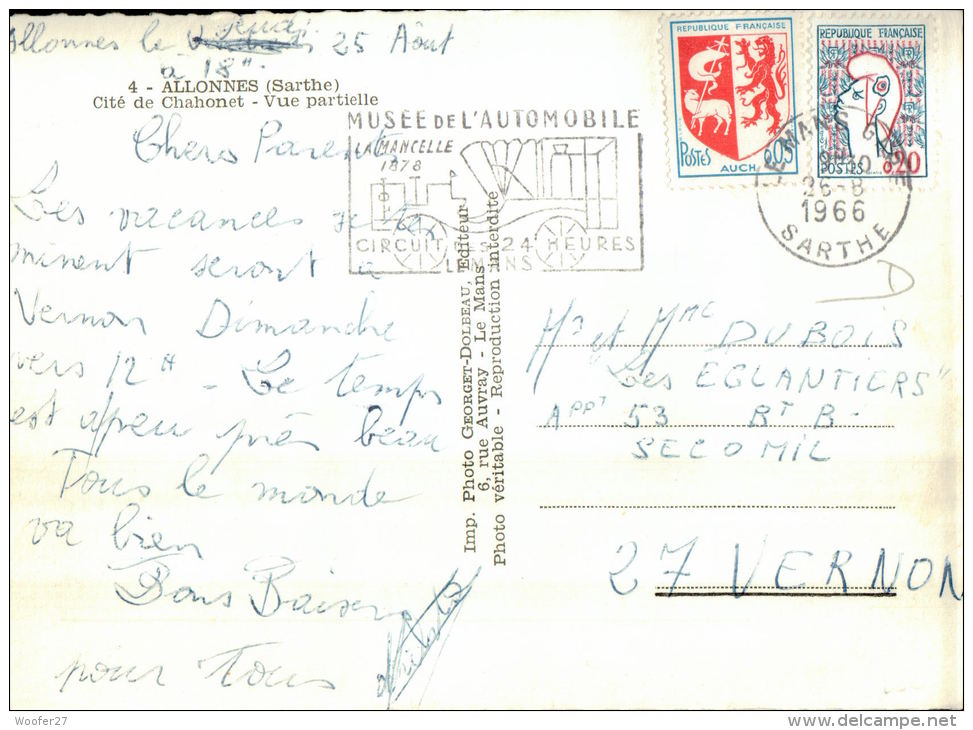 Allonnes le Jeudi 25 Août
a 18H.
4 - ALLONNES (Sarthe)
Cité de Chahonet - Vue partielle
Chers Parents
Les vacances se ter
minent seront à
Vernon Dimanche
vers 12H - Le temps
est apeu près beau
Tous le monde
va bien
Bons Baisers
pour Tous
MUSÉE DE L'AUTOMOBILE
LA MANCELLE
1878
CIRCUIT DES 24 HEURES
LE MANS
Imp. Photo GEORGET-DOLBEAU, Editeur
6, rue Auvray - Le Mans
Photo véritable - Reproduction interdite
RÉPUBLIQUE FRANÇAISE
POSTES
0,05
AUCH
RÉPUBLIQUE FRANÇAISE
POSTES
0,20
LE MANS
26-8
1966
SARTHE
D
Mr et Mme DUBOIS
"Les EGLANTIERS"
APPT 53 BT B -
SECOMIL
27 VERNON
Woofer27
www.delcampe.net